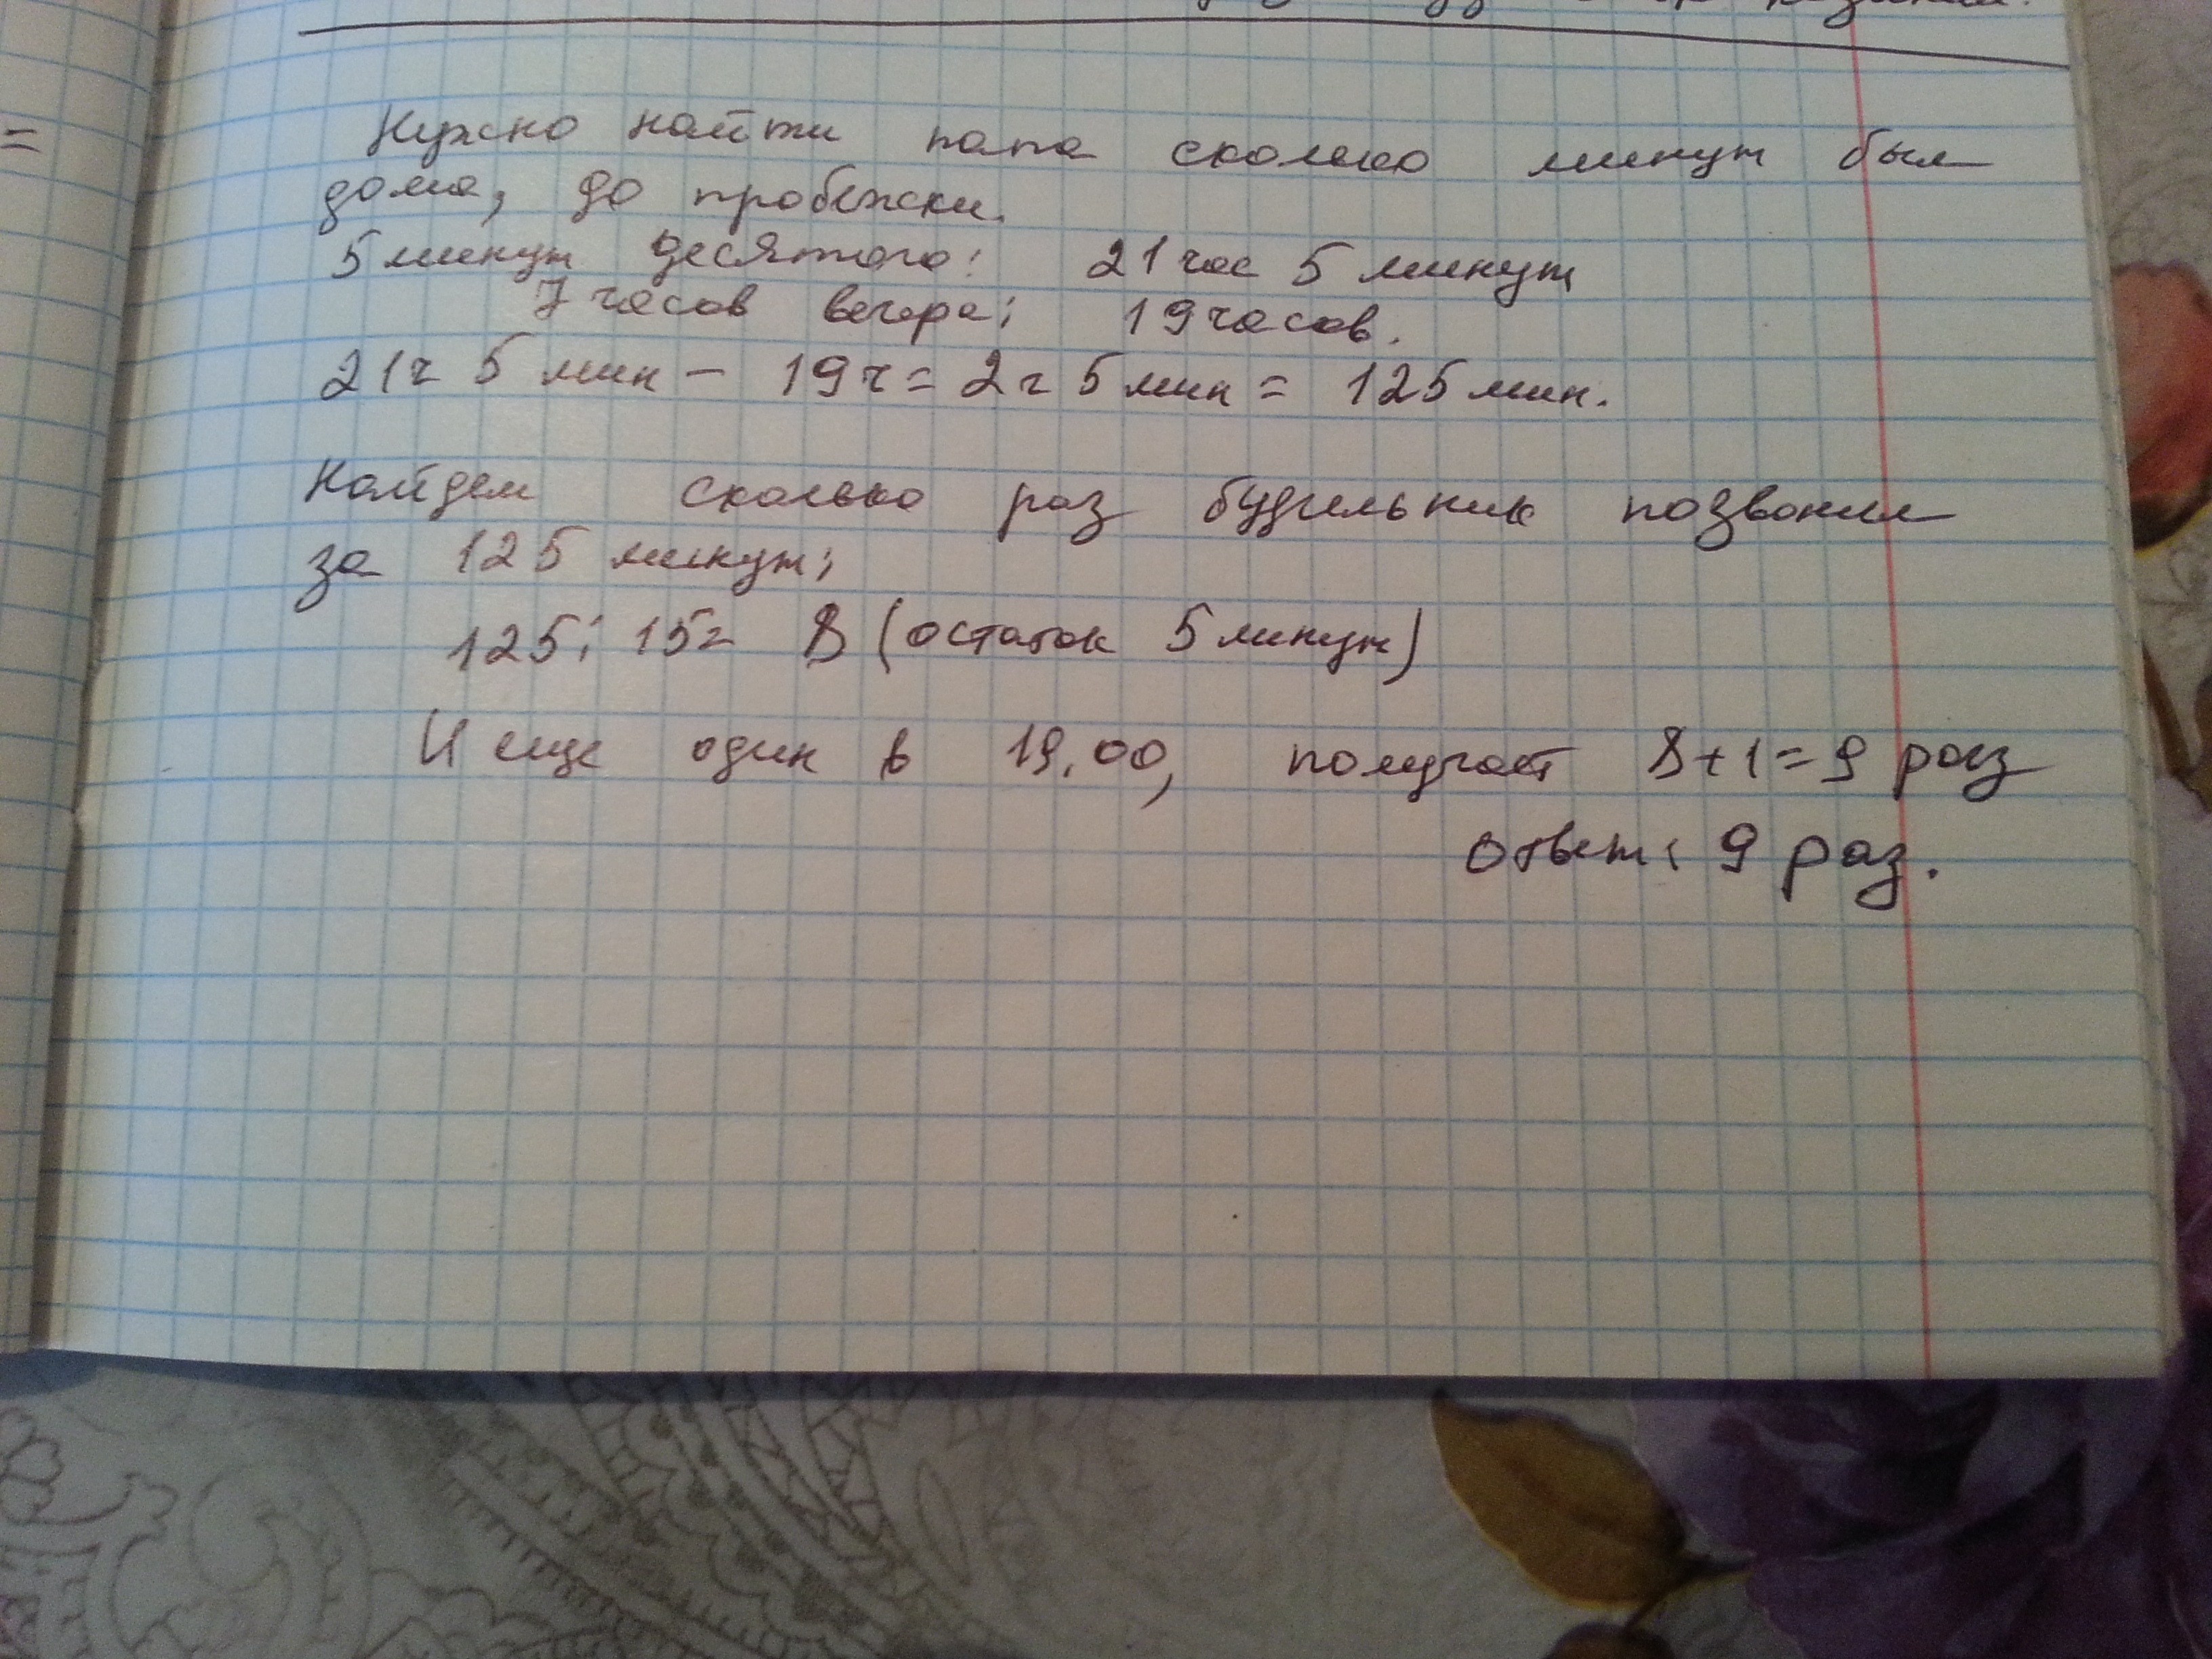 =
Нужно найти папа сколько минут был
дома, до пробежки.
5 минут десятого: 21 час 5 минут
7 часов вечера: 19 часов.
21ч 5 мин - 19ч = 2ч 5 мин = 125 мин.
Найдем сколько раз будильник позвонил
за 125 минут:
125 : 15 = 8 (остаток 5 минут)
И еще один в 19.00, получает 8+1=9 раз
ответ: 9 раз.